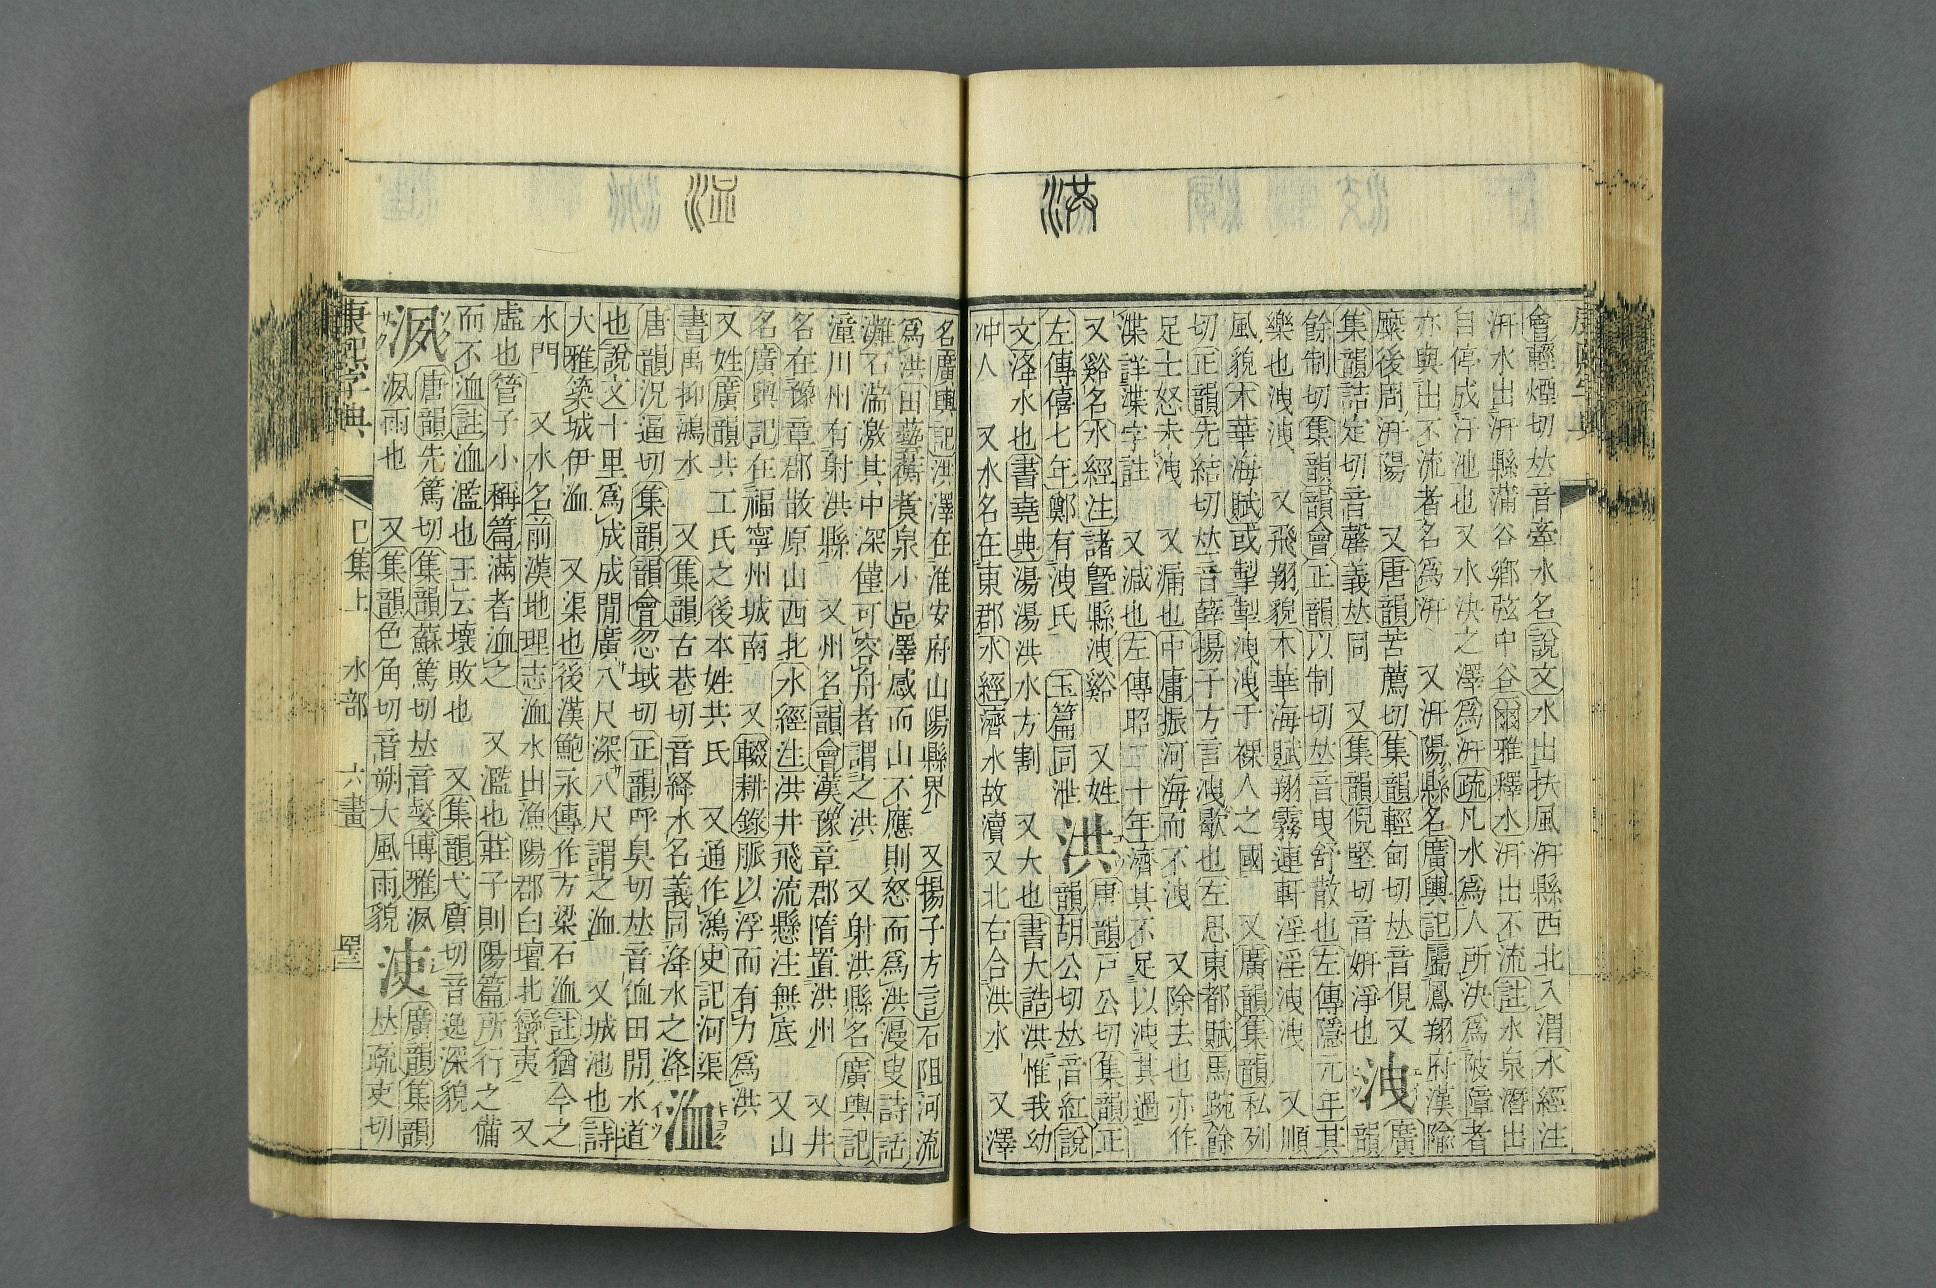 會輕煙切𠀤音牽水名說文水出扶風汧縣西北入渭水經注
汧水出汧縣蒲谷鄉弦中谷爾雅釋水汧出不流註水泉潛出
自停成汙池也又水決之澤爲汧疏凡水爲人所決爲陂障者
亦與出不流者名爲汧　又汧陽縣名廣輿記屬鳳翔府漢隃
麋後周汧陽　又唐韻苦薦切集韻輕甸切𠀤音俔又
集韻詰定切音罄義𠀤同　又集韻倪堅切音姸淨也
洩
廣韻
餘制切集韻韻會正韻以制切𠀤音曳舒散也左傳隱元年其
樂也洩洩　又飛翔貌木華海賦翔霧連軒淫淫洩洩　又順
風貌木華海賦或掣掣洩洩于裸人之國　又廣韻集韻私列
切正韻先結切𠀤音薛揚子方言洩歇也左思東都賦馬踠餘
足士怒未洩　又漏也中庸振河海而不洩　又除去也亦作
渫詳渫字註　又減也左傳昭二十年濟其不足以洩其過
又谿名水經注諸曁縣洩谿　又姓
左傳僖七年鄭有洩氏　玉篇同泄
洪
唐韻戸公切集韻正
韻胡公切𠀤音紅說
文洚水也書堯典湯湯洪水方割　又大也書大誥洪惟我幼
冲人　又水名在東郡水經濟水故瀆又北右合洪水　又澤
名廣輿記洪澤在淮安府山陽縣界　又揚子方言石阻河流
爲洪田藝蘅煑泉小品澤感而山不應則怒而爲洪漫叟詩話
灘石湍激其中深僅可容舟者謂之洪　又射洪縣名廣輿記
潼川州有射洪縣　又州名韻會漢豫章郡隋置洪州　又井
名在豫章郡散原山西北水經注洪井飛流懸注無底　又山
名廣輿記在福寧州城南　又輟耕錄脈以浮而有力爲洪
又姓廣韻共工氏之後本姓共氏　又通作鴻史記河渠
書禹抑鴻水　又集韻古巷切音絳水名義同洚水之洚
洫
唐韻況逼切集韻韻會忽域切正韻呼臭切𠀤音侐田閒水道
也說文十里爲成成閒廣八尺深八尺謂之洫　又城池也詩
大雅築城伊洫　又渠也後漢鮑永傳作方梁石洫註猶今之
水門　又水名前漢地理志洫水出漁陽郡白壇北蠻夷　又
虛也管子小稱篇滿者洫之　又濫也莊子則陽篇所行之備
而不洫註洫濫也王云壞敗也　又集韻弋質切音逸深貌
洬
唐韻先篤切集韻蘇篤切𠀤音㛮博雅洬
洬雨也　又集韻色角切音朔大風雨貌
浭
廣韻集韻
𠀤疏吏切
康熙字典
巳集上　水部　六畫